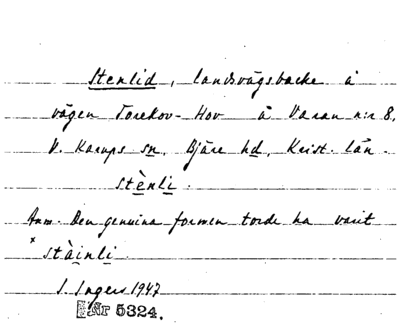 Stenlid, landsvägsbacke å
vägen Torekov - Hov å Varan n:r 8,
V. Karups sn, Bjäre hd, Krist. län.
stènli.
Anm. Den genuina formen torde ha varit
*stàinli.
I. Ingers 1947
Nr 5324.